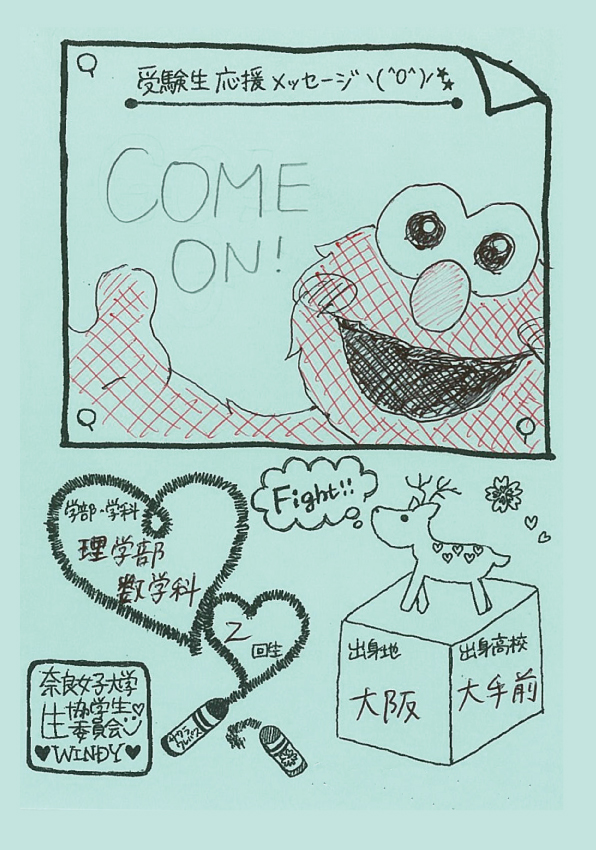 受験生応援メッセージヽ(^0^)ノ
COME
ON!
Fight!!
学部・学科
理学部
数学科
2
回生
出身地
大阪
出身高校
大手前
奈良女子大学
生協学生
委員会
♥WINDY♥
サクラ
クレパス